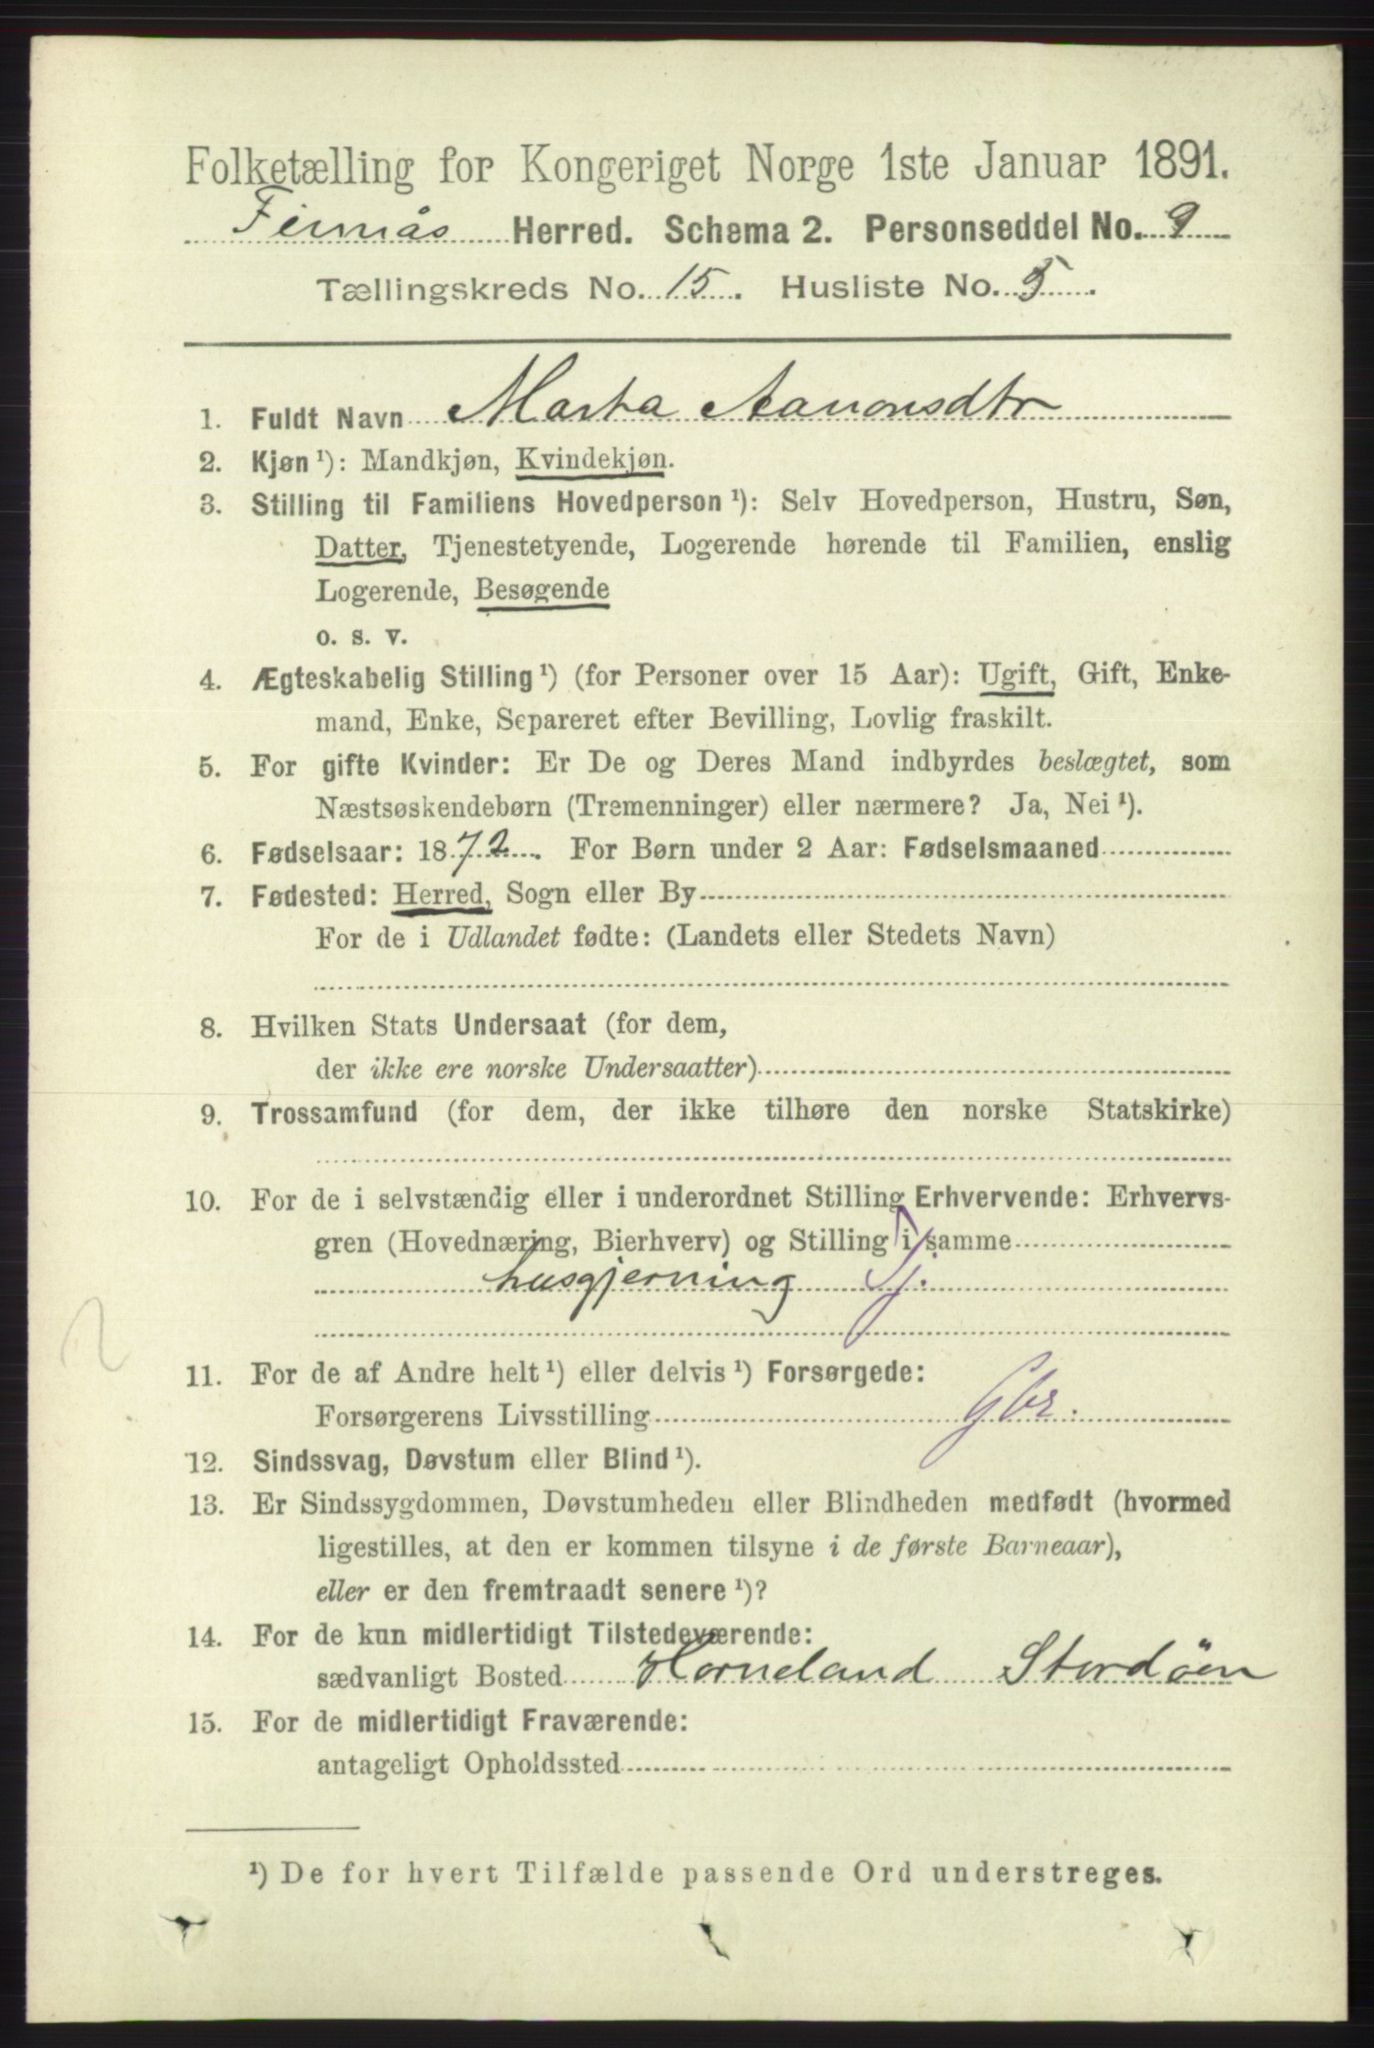 Folketælling for Kongeriget Norge 1ste Januar 1891.
Finnås Herred. Schema 2. Personseddel No. 9
Tællingskreds No. 15. Husliste No. 5.
1. Fuldt Navn Marta Aanonsdtr
2. Kjøn ¹): Mandkjøn, Kvindekjøn.
3. Stilling til Familiens Hovedperson ¹): Selv Hovedperson, Hustru, Søn,
Datter, Tjenestetyende, Logerende hørende til Familien, enslig
Logerende, Besøgende
o. s. v.
4. Ægteskabelig Stilling ¹) (for Personer over 15 Aar): Ugift, Gift, Enke-
mand, Enke, Separeret efter Bevilling, Lovlig fraskilt.
5. For gifte Kvinder: Er De og Deres Mand indbyrdes beslægtet, som
Næstsøskendebørn (Tremenninger) eller nærmere? Ja, Nei ¹).
6. Fødselsaar: 1872. For Børn under 2 Aar: Fødselsmaaned
7. Fødested: Herred, Sogn eller By
For de i Udlandet fødte: (Landets eller Stedets Navn)
8. Hvilken Stats Undersaat (for dem,
der ikke ere norske Undersaatter)
9. Trossamfund (for dem, der ikke tilhøre den norske Statskirke)
10. For de i selvstændig eller i underordnet Stilling Erhvervende: Erhvervs-
gren (Hovednæring, Bierhverv) og Stilling i samme
husgjerning Tj.
11. For de af Andre helt ¹) eller delvis ¹) Forsørgede:
Forsørgerens Livsstilling Gbr.
12. Sindssvag, Døvstum eller Blind ¹).
13. Er Sindssygdommen, Døvstumheden eller Blindheden medfødt (hvormed
ligestilles, at den er kommen tilsyne i de første Barneaar),
eller er den fremtraadt senere ¹)?
14. For de kun midlertidigt Tilstedeværende:
sædvanligt Bosted Horneland Stordöen
15. For de midlertidigt Fraværende:
antageligt Opholdssted
¹) De for hvert Tilfælde passende Ord understreges.
2